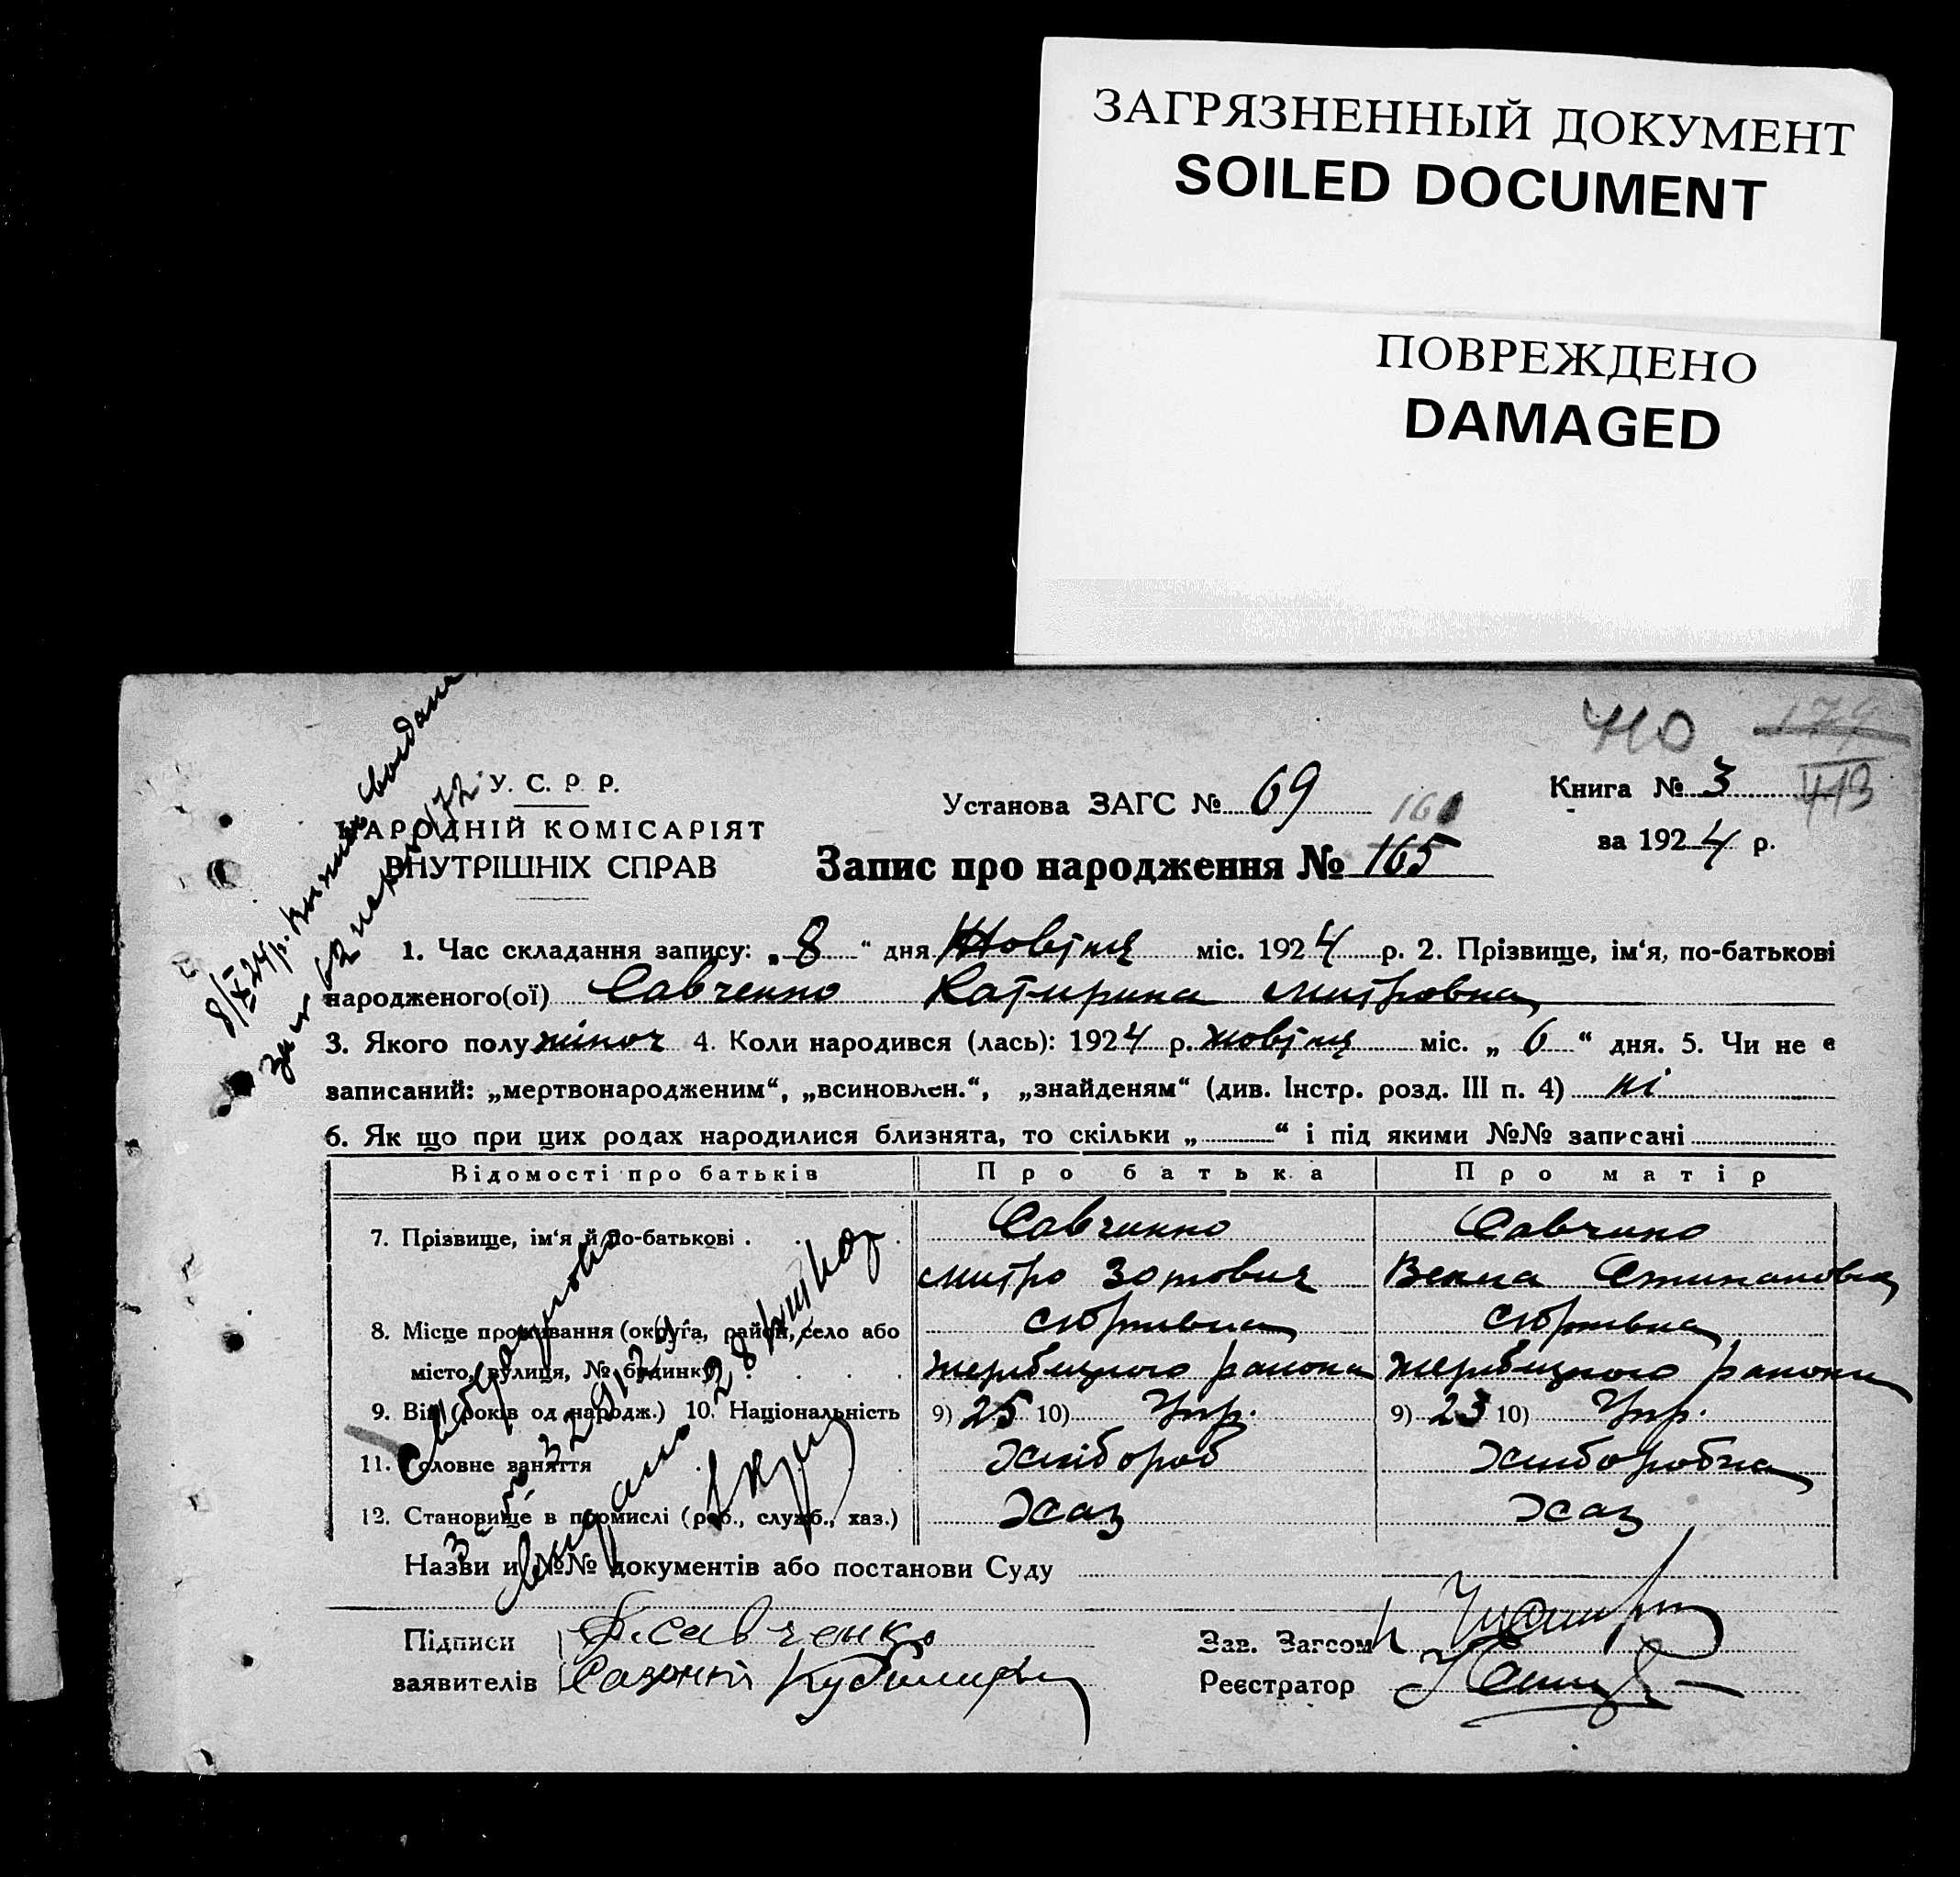 ЗАГРЯЗНЕННЫЙ ДОКУМЕНТ
SOILED DOCUMENT
ПОВРЕЖДЕНО
DAMAGED
410 179
413
У. С. Р. Р.
НАРОДНІЙ КОМІСАРІЯТ
ВНУТРІШНІХ СПРАВ
Установа ЗАГС № 69
Книга № 3
за 1924 р.
161
Запис про народження № 165
8/X 24 р.
1. Час складання запису: „8“ дня Жовтня міс. 1924 р. 2. Прізвище, ім‘я, по-батькові
народженого(ої) Савченко Катирина Митровна
3. Якого полу жіноч 4. Коли народився (лась): 1924 р. жовтня міс. „6“ дня. 5. Чи не є
записаний: „мертвонародженим“, „всиновлен.“, „знайденям“ (див. Інстр. розд. III п. 4) ні
6. Як що при цих родах народилися близнята, то скільки „ “ і під якими №№ записані
Відомості про батьків Про батька Про матір
7. Прізвище, ім‘я й по-батькові Савчинко Савчинко
Митро Зотович Векла Стипановна
8. Місце проживання (округа, район, село або
місто, вулиця, № будинку)
района района
9. Вік (років од народж.) 10. Національність 9) 25 10) Укр. 9) 23 10) Укр.
11. Головне заняття Хлібороб Хлиборобка
12. Становище в промислі (роб., служб., хаз.) Хаз Хаз
Назви и №№ документів або постанови Суду
Підписи Савченко
заявителів
Зав. Загсом
Реєстратор